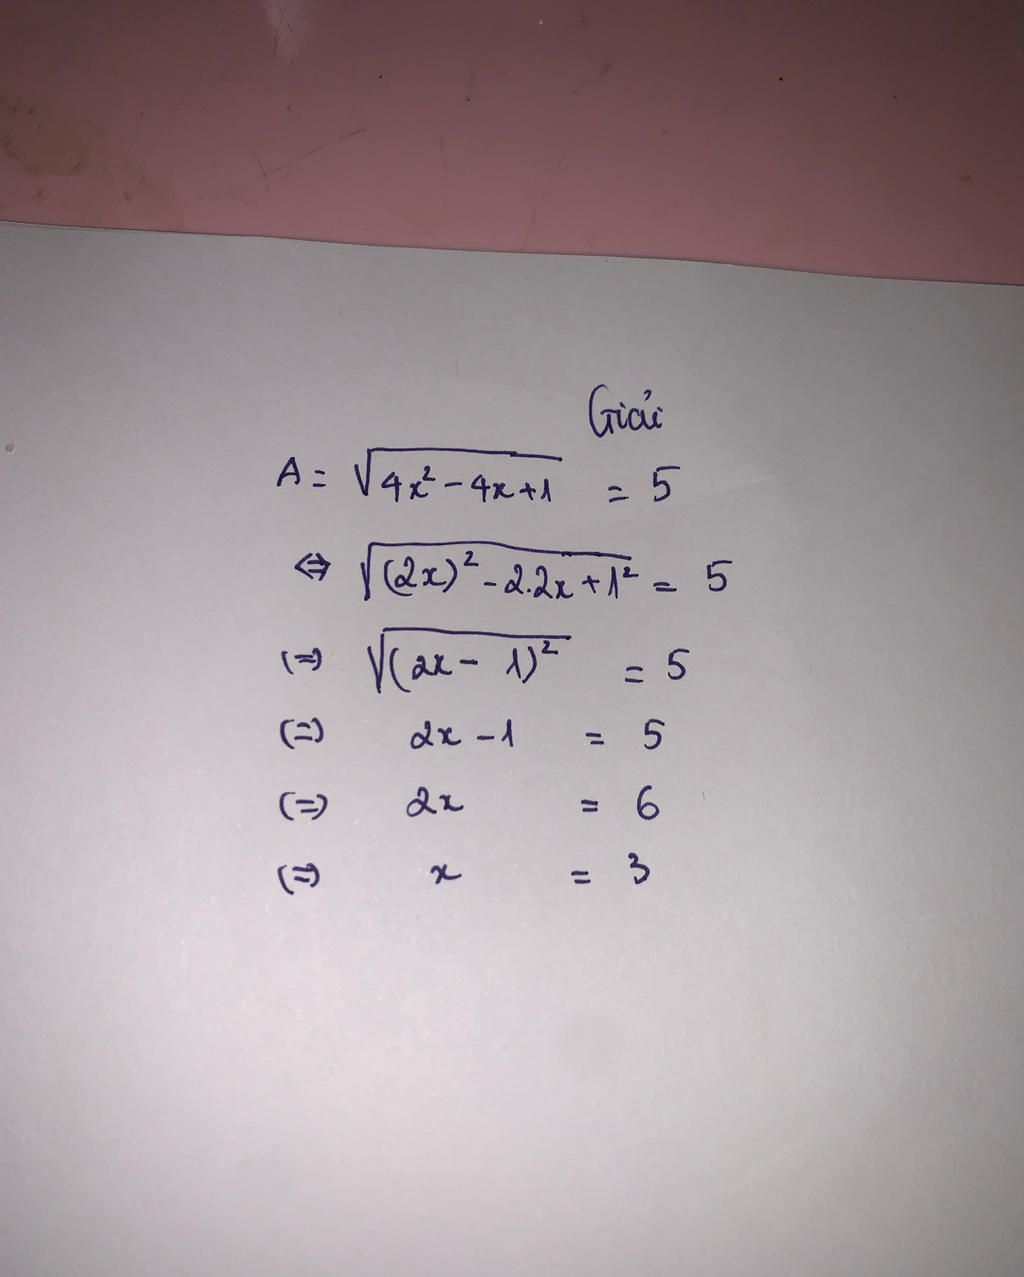 Giải
A = √(4x² - 4x + 1) = 5
⇔ √((2x)² - 2.2x + 1²) = 5
(=) √((2x - 1)²) = 5
(=) 2x - 1 = 5
(=) 2x = 6
(=) x = 3